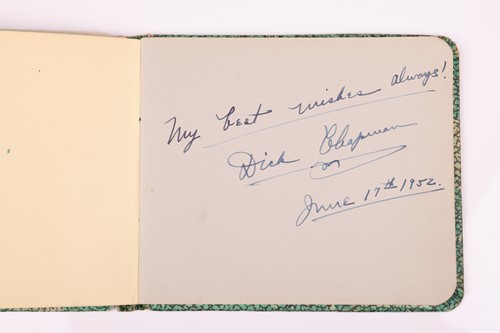 My best wishes always!
Dick Chapman
June 17th 1952.